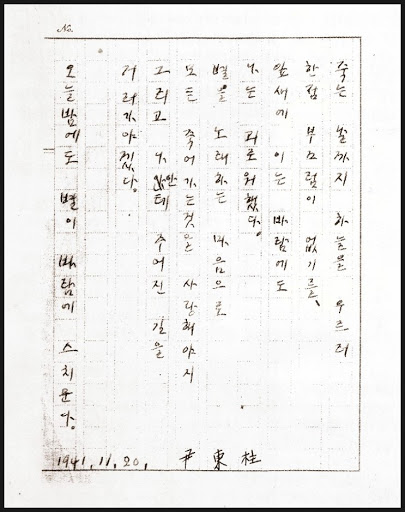 No.
죽는 날까지 하늘을 우르러
한점 부끄럼이 없기를、
잎새에 이는 바람에도
나는 괴로워했다.
별을 노래하는 마음으로
모든 죽어가는것을 사랑해야지
그리고 나안테 주어진 길을
거러가야겠다.
오늘밤에도 별이 바람에 스치운다.
1941.11.20. 尹東柱